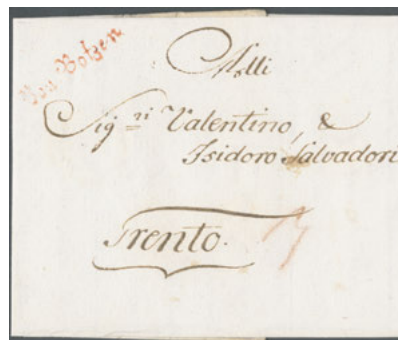 Von Botzen
Alli
Sig.ri Valentino, &
Isidoro Salvadori
Trento.